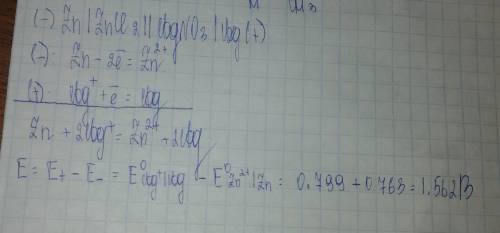 (-) Zn | ZnCl2 || AgNO3 | Ag (+)
(-): Zn - 2ē = Zn²⁺
(+): Ag⁺ + ē = Ag
Zn + 2Ag⁺ = Zn²⁺ + 2Ag
E = E₊ - E₋ = E⁰Ag⁺|Ag - E⁰Zn²⁺|Zn = 0.799 + 0.763 = 1.562 В